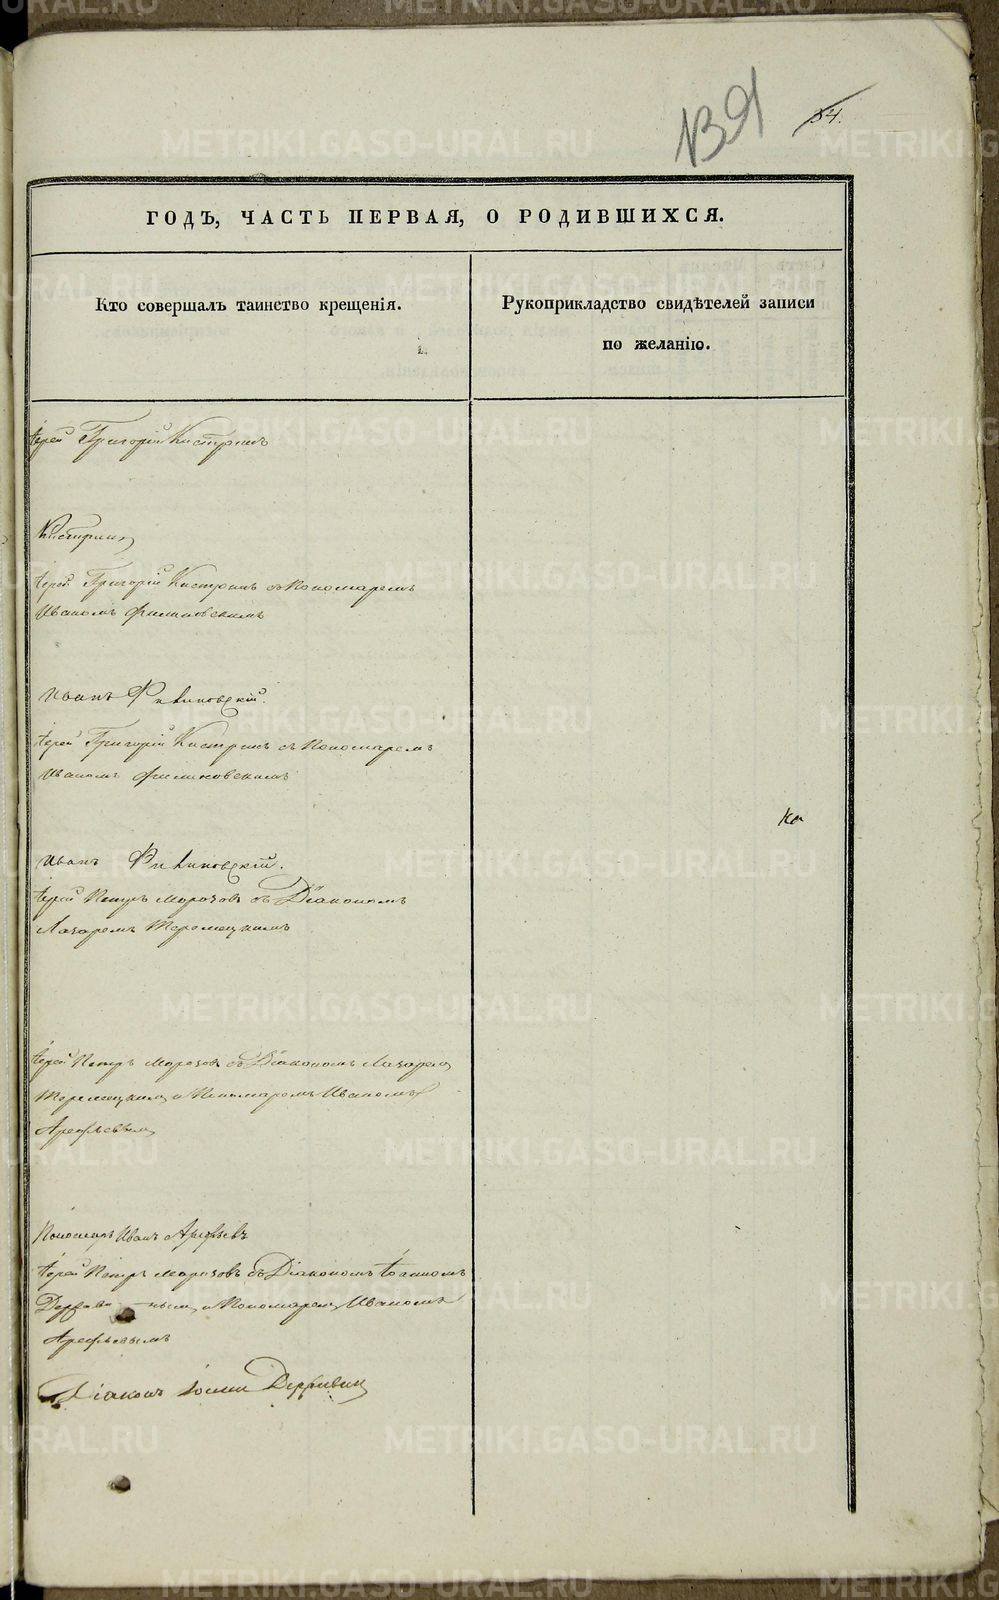 139
84.
ГОДЪ, ЧАСТЬ ПЕРВАЯ, О РОДИВШИХСЯ.
Кто совершалъ таинство крещенія.
Рукоприкладство свидѣтелей записи
по желанію.
Іерей Григорій Кистринъ
Кистринъ
Іерей Григорій Кистринъ съ Пономаремъ
Иваномъ Филиповскимъ
Иванъ Филиповскій.
Іерей Григорій Кистринъ съ Пономаремъ
Иваномъ Филиповскимъ
Ка
Иванъ Филиповскій.
Іерей Петръ Морозовъ съ Діакономъ
Лазаремъ
Іерей Петръ Морозовъ съ Діакономъ Лазаремъ
и Пономаремъ Иваномъ
Арефьевымъ
Пономарь Иванъ Арефьевъ
Іерей Петръ Морозовъ съ Діакономъ Іоанномъ
и Пономаремъ Иваномъ
Арефьевымъ
Діаконъ
METRIKI.GASO-URAL.RU